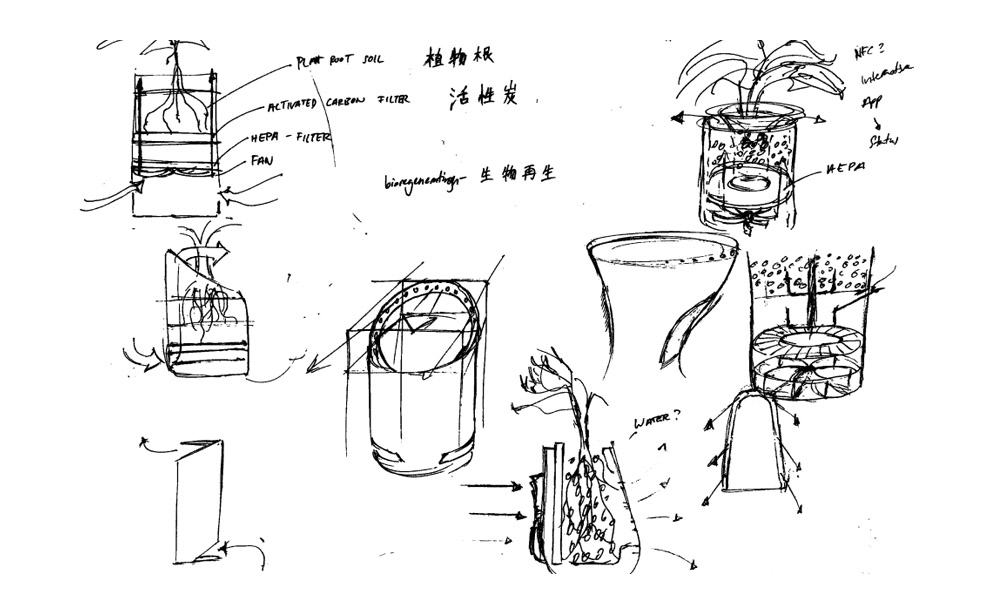 PLANT ROOT SOIL 植物根
ACTIVATED CARBON FILTER 活性炭
HEPA-FILTER
FAN
bioregenerating- 生物再生
NFC?
Interactive
App
Status
HEPA
WATER?